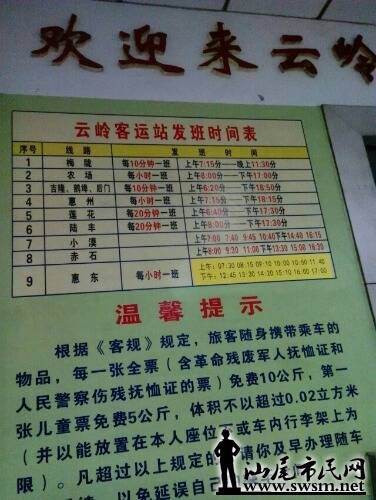 欢迎来云岭
云岭客运站发班时间表
序号 线路 发班时间
1 梅陇 每10分钟一班 上午7:15分——晚上11:30分
2 农场 每小时一班 上午8:00分——下午17:00分
3 吉隆、鹅埠、后门 每10分钟一班 上午6:20分——下午18:50分
4 惠州 每小时一班 上午7:15分——下午18:15分
5 莲花 每20分钟一班 上午6:40分——下午17:50分
6 陆丰 每20分钟一班 上午8:00分——下午17:50分
7 小漠 上午7:00 7:40 9:45 10:40 下午14:40 16:15
8 赤石 上午8:00 9:30 11:30 下午13:30 15:00 16:30
9 惠东 每小时一班 上午:07:30 08:15 09:10 10:10 10:50 11:40
下午:12:45 13:30 14:20 15:10 16:00 17:00
温馨提示
根据《客规》规定,旅客随身携带乘车的
物品,每一张全票(含革命残废军人抚恤证和
人民警察伤残抚恤证的票)免费10公斤,第一
张儿童票免费5公斤,体积不以超过0.02立方米
(并以能放置在本人座位下或车内行李架上为
限)。凡超过以上规定的 请你及早办理随车
以免延误自己
汕尾市民网
www.swsm.net